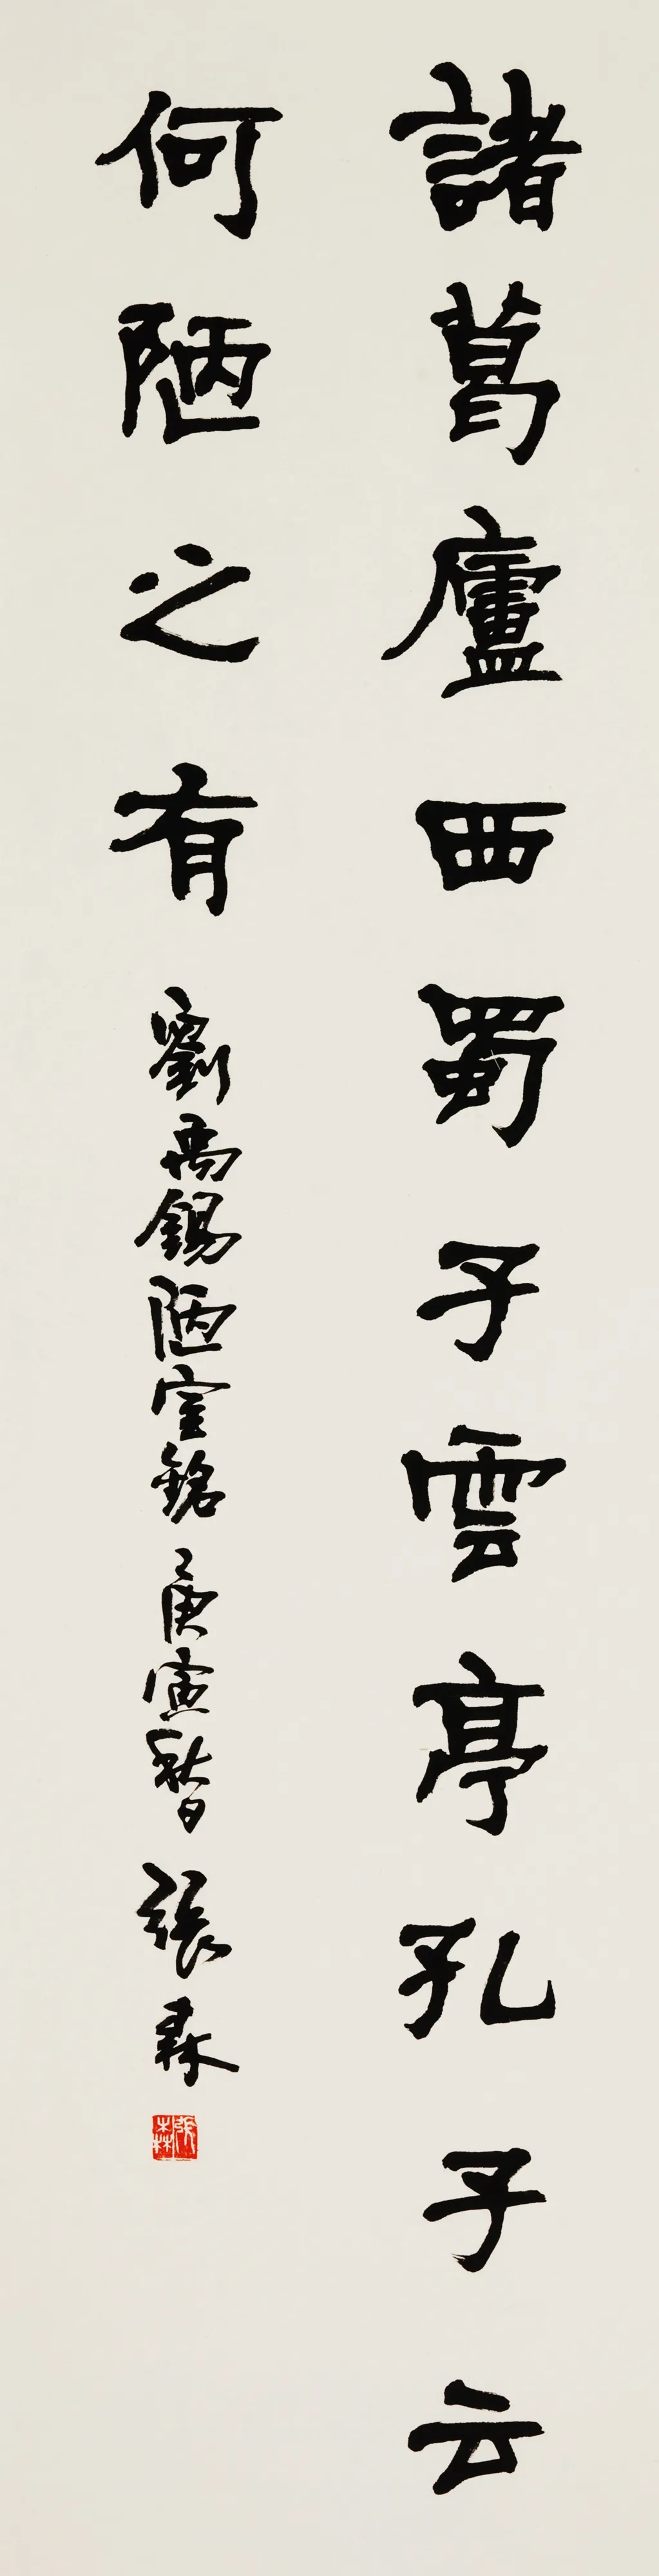 諸葛廬西蜀子雲亭孔子云
何陋之有 劉禹錫陋室銘 庚寅秋暮日 張森
張森